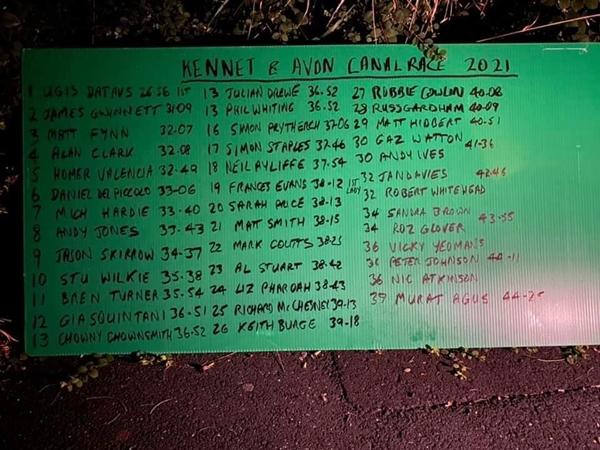 KENNET & AVON CANAL RACE 2021
1 UGIS DATAVS 26-56 1ST
2 JAMES GWINNETT 31-09
3 MATT FYNN 32-07
4 ALAN CLARK 32-08
5 HOMER VALENCIA 32-49
6 DANIEL DEL PICCOLO 33-06
7 MICH HARDIE 33-40
8 ANDY JONES 33-43
9 JASON SKIRROW 34-37
10 STU WILKIE 35-38
11 BREN TURNER 35-54
12 GIASQUINTANI 36-51
13 CHOWNY CHOWNSMITH 36-52
13 JULIAN DREWE 36-52
13 PHIL WHITING 36-52
16 SIMON PRYTHERCH 37-06
17 SIMON STAPLES 37-46
18 NEIL AYLIFFE 37-54
19 FRANCES EVANS 38-12 1ST LADY
20 SARAH PRICE 38-13
21 MATT SMITH 38-15
22 MARK COUTTS 38-23
23 AL STUART 38-42
24 LIZ PHAROAH 38-43
25 RICHARD McCHESNEY 39-13
26 KEITH BURGE 39-18
27 ROBBIE 40-08
28 RUSS GARDHAM 40-09
29 MATT HIDBERT 40-51
30 GAZ WATTON
30 ANDY IVES 41-36
32 JAN DAVIES
32 ROBERT WHITEHEAD
34 SANDRA BROWN
34 ROZ GLOVER 43-55
36 VICKY YEOMANS
36 PETER JOHNSON 44-11
36 NIC ATKINSON
39 MURAT AGUS 44-25